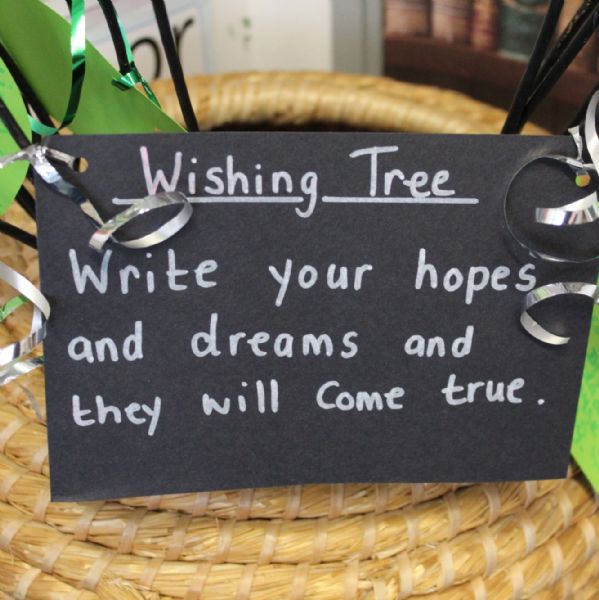 Wishing Tree
Write your hopes
and dreams and
they will Come true.